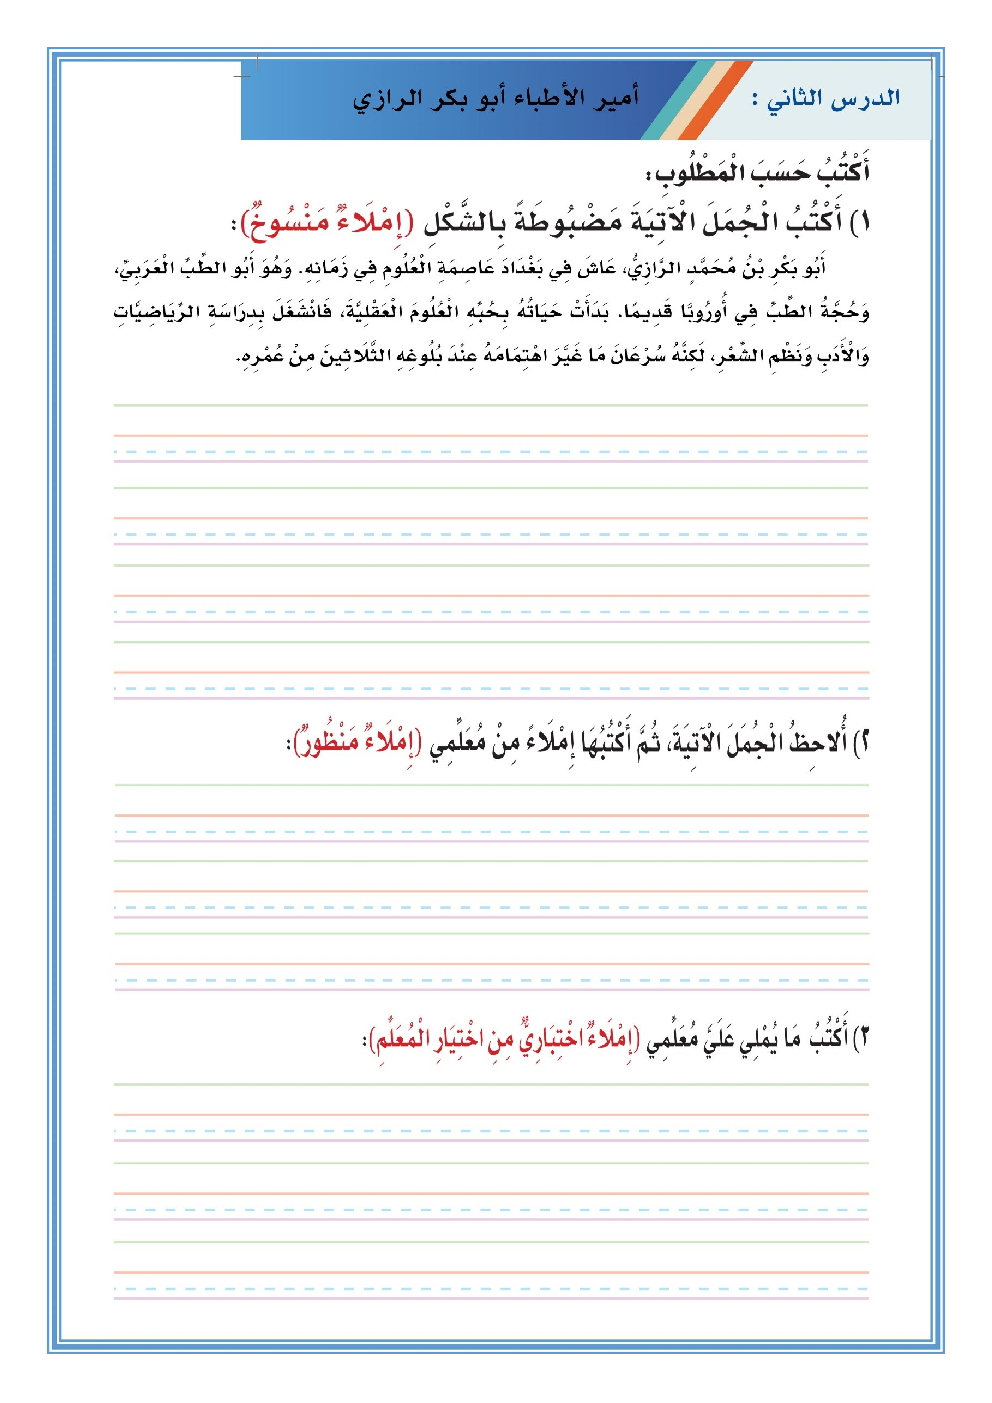 الدرس الثاني : أمير الأطباء أبو بكر الرازي
أَكْتُبُ حَسَبَ الْمَطْلُوبِ:
١) أَكْتُبُ الْجُمَلَ الْآتِيَةَ مَضْبُوطَةً بِالشَّكْلِ (إِمْلَاءٌ مَنْسُوخٌ):
أَبُو بَكْرِ بْنُ مُحَمَّدٍ الرَّازِيُّ، عَاشَ فِي بَغْدَادَ عَاصِمَةِ الْعُلُومِ فِي زَمَانِهِ. وَهُوَ أَبُو الطِّبِّ الْعَرَبِيِّ،
وَحُجَّةُ الطِّبِّ فِي أُورُوبَّا قَدِيمًا. بَدَأَتْ حَيَاتُهُ بِحُبِّهِ الْعُلُومَ الْعَقْلِيَّةَ، فَانْشَغَلَ بِدِرَاسَةِ الرِّيَاضِيَّاتِ
وَالْأَدَبِ وَنَظْمِ الشِّعْرِ، لَكِنَّهُ سُرْعَانَ مَا غَيَّرَ اهْتِمَامَهُ عِنْدَ بُلُوغِهِ الثَّلَاثِينَ مِنْ عُمْرِهِ.
٢) أُلاحِظُ الْجُمَلَ الْآتِيَةَ، ثُمَّ أَكْتُبُهَا إِمْلَاءً مِنْ مُعَلِّمِي (إِمْلَاءٌ مَنْظُورٌ):
٣) أَكْتُبُ مَا يُمْلِي عَلَيَّ مُعَلِّمِي (إِمْلَاءٌ اخْتِبَارِيٌّ مِنِ اخْتِيَارِ الْمُعَلِّمِ):